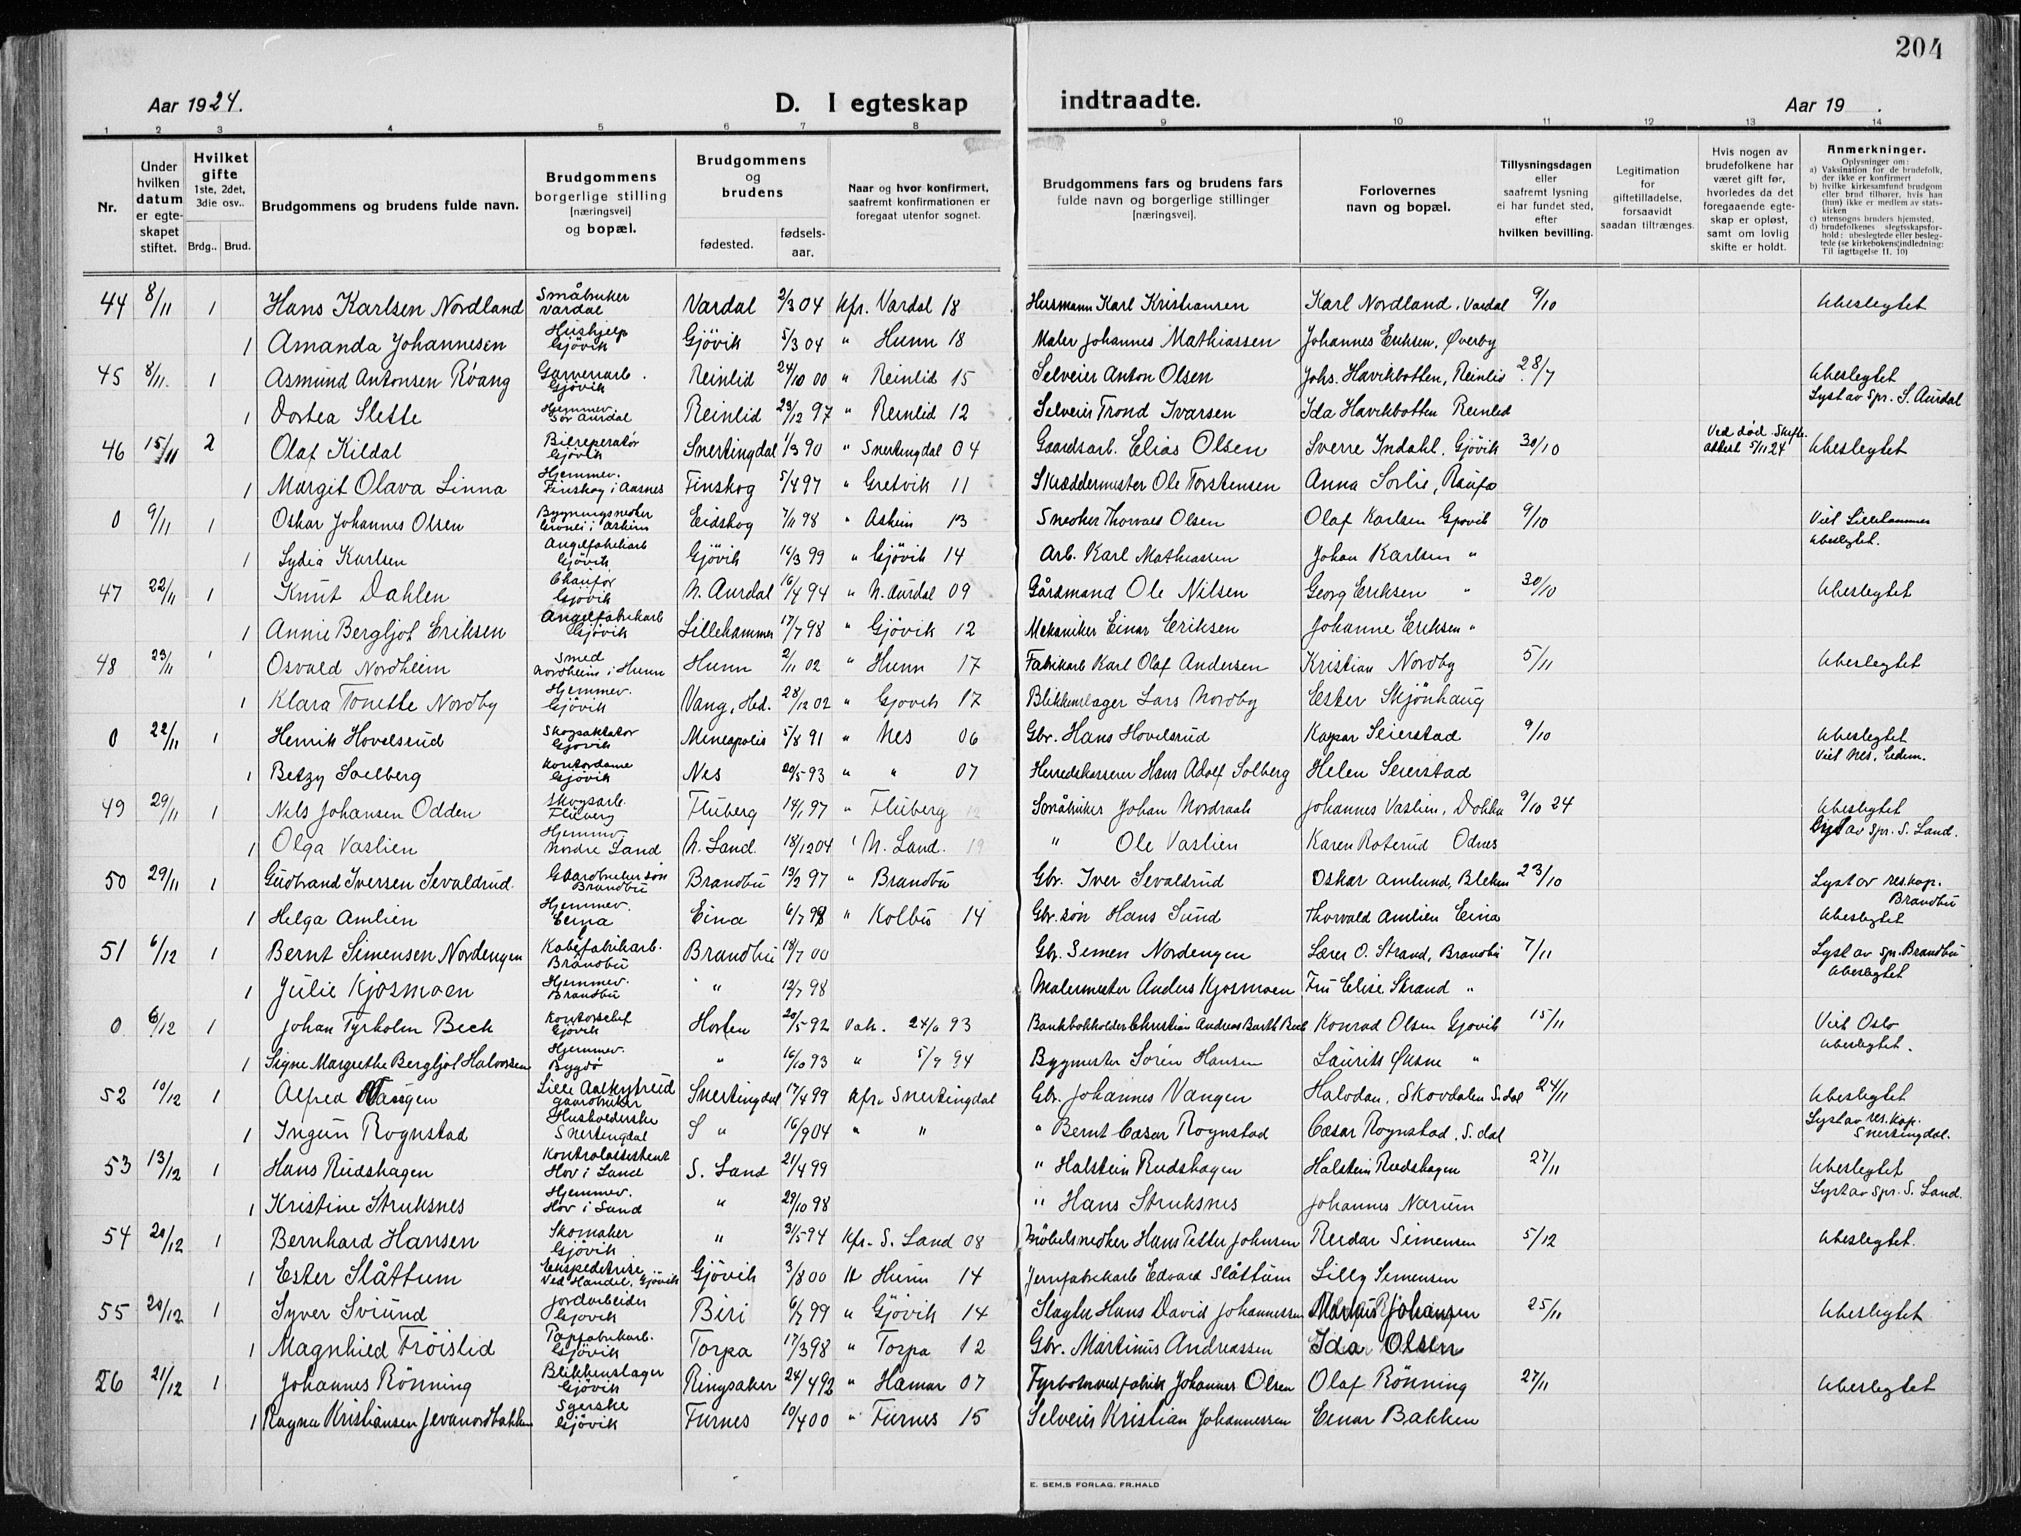 204
Aar 1924.
D. I egteskap indtraadte.
Aar 19 .
1 2 3 4 5 6 7 8 9 10 11 12 13 14
Nr.
Under hvilken datum er egteskapet stiftet.
Hvilket gifte 1ste, 2det, 3die osv..
Brdg.. Brud.
Brudgommens og brudens fulde navn.
Brudgommens borgerlige stilling [næringsvei] og bopæl.
Brudgommens og brudens
fødested.
fødselsaar.
Naar og hvor konfirmert, saafremt konfirmationen er foregaat utenfor sognet.
Brudgommens fars og brudens fars fulde navn og borgerlige stillinger [næringsvei].
Forlovernes navn og bopæl.
Tillysningsdagen eller saafremt lysning ei har fundet sted, efter hvilken bevilling.
Legitimation for giftetilladelse, forsaavidt saadan tiltrænges.
Hvis nogen av brudefolkene har været gift før, hvorledes da det foregaaende egteskap er opløst, samt om lovlig skifte er holdt.
Anmerkninger.
Oplysninger om:
a) Vaksination for de brudefolk, der ikke er konfirmert
b) hvilke kirkesamfund brudgom eller brud tilhører, hvis han (hun) ikke er medlem av statskirken
c) utensogns bruders hjemsted.
d) brudefolkenes slegtsskapsforhold: ubeslegtede eller beslegtede (se kirkebokens indledning: Til iagttagelse 11, 10)
44 8/11 1 Hans Karlsen Nordland Småbruker Vardal Vardal 2/3 04 kfr. Vardal 18 Husmann Karl Kristiansen Karl Nordland, Vardal 9/10 Ubeslegtet
1 Amanda Johannesen Hushjelp Gjövik Gjövik 5/3 04 " Hunn 18 Maler Johannes Mathiassen Johannes Eriksen, Øverby
45 8/11. 1 Asmund Antonsen Röang Garveriarb. Gjövik Reinlid 24/10 00 " Reinlid 15 Selveier Anton Olsen Johs. Havikbotten, Reinlid 28/7 Ubeslegtet
1 Dortea Slette Hjemmev. Sör Aurdal Reinlid 23/12 97 " Reinlid 12 Selveier Trond Ivarsen Ida Havikbotten Reinlid Lyst av Spr. S. Aurdal
46 15/11 2 Olaf Kildal Bilreperatør Gjövik Snertingdal 1/3 90 " Snertingdal 04 Gaardsarb. Elias Olsen Sverre Indahl, Gjövik 30/10 Ved død. Skifte attest 5/11 24 Ubeslegtet
1 Margit Olava Linna Hjemmev. Finskog i Aasnes Finskog 5/4 97 " Gretvik 11 Skræddermester Ole Torstensen Anna Sorlie, Raufo
0 9/11 1 Oskar Johannes Olsen Bygningssnedker Askim Eidskog 7/11 98 " Askim 13 Snedker Thorvald Olsen Olaf Karlsen Gjovik 9/10 Viet Lillehammer Ubeslegtet.
1 Lydia Karlsen Angelfabrikarb Gjövik Gjövik 16/3 99 " Gjövik 14 Arb. Karl Mathiassen Johan Karlsen "
47 22/11 1 Knut Dahlen Chaufør Gjövik N. Aurdal 16/4 94 " N. Aurdal 09 Gårdmand Ole Nilsen Georg Eriksen " 30/10 Ubeslegtet
1 Annie Bergljot Eriksen Angelfabrikarb Gjövik Lillehammer 17/7 98 " Gjövik 12 Mekaniker Einar Eriksen Johanne Eriksen "
48 23/11 1 Osvald Nordheim Smed Nordheim i Hunn Hunn 2/11 02 " Hunn 17 Fabrikarb Karl Olaf Andersen Kristian Nordby 5/11 Ubeslegtet
1 Klara Tonette Nordby Hjemmev. Gjövik Vang, Hed. 28/12 02 " Gjovik 17 Blikkenslager Lars Nordby Ester Skjönhaug
0 22/11 1 Henrik Hovelsrud Skogsaktatør Gjövik Mineapolis 5/8 91 " Nes 06 Gbr. Hans Hovelsrud Kaspar Seierstad 9/10 Ubeslegtet
1 Betzy Solberg Kontordame Gjövik Nes 20/5 93 " " 07 Herredskasserer Hans Adolf Solberg Helen Seierstad Viet Nes, Hedm.
49 29/11 1 Nils Johansen Odden Skogsarb. Fluberg Fluberg 14/1 97 " Fluberg 12 Småbruker Johan Nordraak Johannes Vaslien, Dokka 9/10 24 Ubeslegtet
1 Olga Vaslien Hjemmev Nordre Land N. Land. 18/12 04 " N. Land. 19 " Ole Vaslien Karen Roterud Odnes Lyst av Spr. S. Land.
50 29/11 1 Gudbrand Iversen Sevaldrud. Gaardbruker søn Brandbu Brandbu 13/2 97 " Brandbu Gbr. Iver Sevaldrud Oskar Amlund, Bleken 23/10 Lyst av res.kap. Brandbu
1 Helga Amlien Hjemmev. Eina Eina 6/7 98 " Kolbu 14 Gbr. søn Hans Sund Thorvald Amlien Eina Ubeslegtet
51 6/12 1 Bernt Simensen Nordengen Brandbu Brandbu 13/7 00 Gbr. Simen Nordengen Lærer O. Strand, Brandbu 7/11 Lyst av Spr. Brandbu Ubeslegtet
1 Julie Kjosmoen Hjemmev. Brandbu " 12/7 98 Malermester Anders Kjosmoen Fru Elise Strand "
0 6/12 1 Johan Tyrholm Beck Kontorchef Gjövik Horten 20/5 92 Vak. 24/6 93 Bankbokholder Christian Andreas Barth Beck Konrad Olsen Gjovik 15/11 Viet Oslo Ubeslegtet.
1 Signe Margrethe Bergljot Halvorsen Hjemmev. Bygdø " 16/10 93 " 5/9 94 Bygmester Sören Hansen Laurits Øksne "
52 10/12 1 Alfred Vangen Lille gaardbruker Snertingdal 17/4 99 kfr. Snertingdal Gbr. Johannes Vangen Halvdan, Skovdalen S.dal 24/11 Ubeslegtet
1 Ingun Rognstad Husholderske Snertingdal S " 16/9 04 " " " Bernt Cæsar Rognstad Cæsar Rognstad, S.dal Lyst av res.kap. Snertingdal.
53 13/12 1 Hans Rudshagen Kontrolassistent Hov i Land S. Land 21/4 99 " Halstein Rudshagen Halstein Rudshagen 27/11 Ubeslegtet
1 Kristine Struksnes Hjemmev. Hov i Land " 29/10 98 " Hans Struksnes Johannes Narum Lyst av Spr. S. Land.
54 20/12 1 Bernhard Hansen Skomaker Gjövik " 31/5 94 kfr. S. Land 08 Möbelsnedker Hans Petter Johnsen Reidar Simensen 5/12 Ubeslegtet.
1 Ester Slåttum Ekspeditrise Ved Handel, Gjövik Gjövik 3/8 00 " Hunn 14 Jernfabrikarb Edvard Slåttum Lilly Simensen
55 20/12 1 Syver Sviund Jordarbeider Gjövik Biri 6/7 99 " Gjövik 14 Slagter Hans David Johannessen Markus Johansen 25/11 Ubeslegtet
1 Magnhild Tröistid Papfabrikarb. Gjövik Torpa 17/3 98 " Torpa 12 Gbr. Martinus Andreassen Ida Olsen
56 21/12 1 Johannes Rönning Blikkenslager Gjövik Ringsaker 24/4 92 " Hamar 07 Fyrbøter ved fabrik Johannes Olsen Olaf Rönning 27/11 Ubeslegtet
1 Ragna Kristiansen Jevanordbakken Syerske Gjövik Furnes 10/4 00 " Furnes 15 Selveier Kristian Johannessen Einar Bakken
E. SEM.S FORLAG, FR.HALD